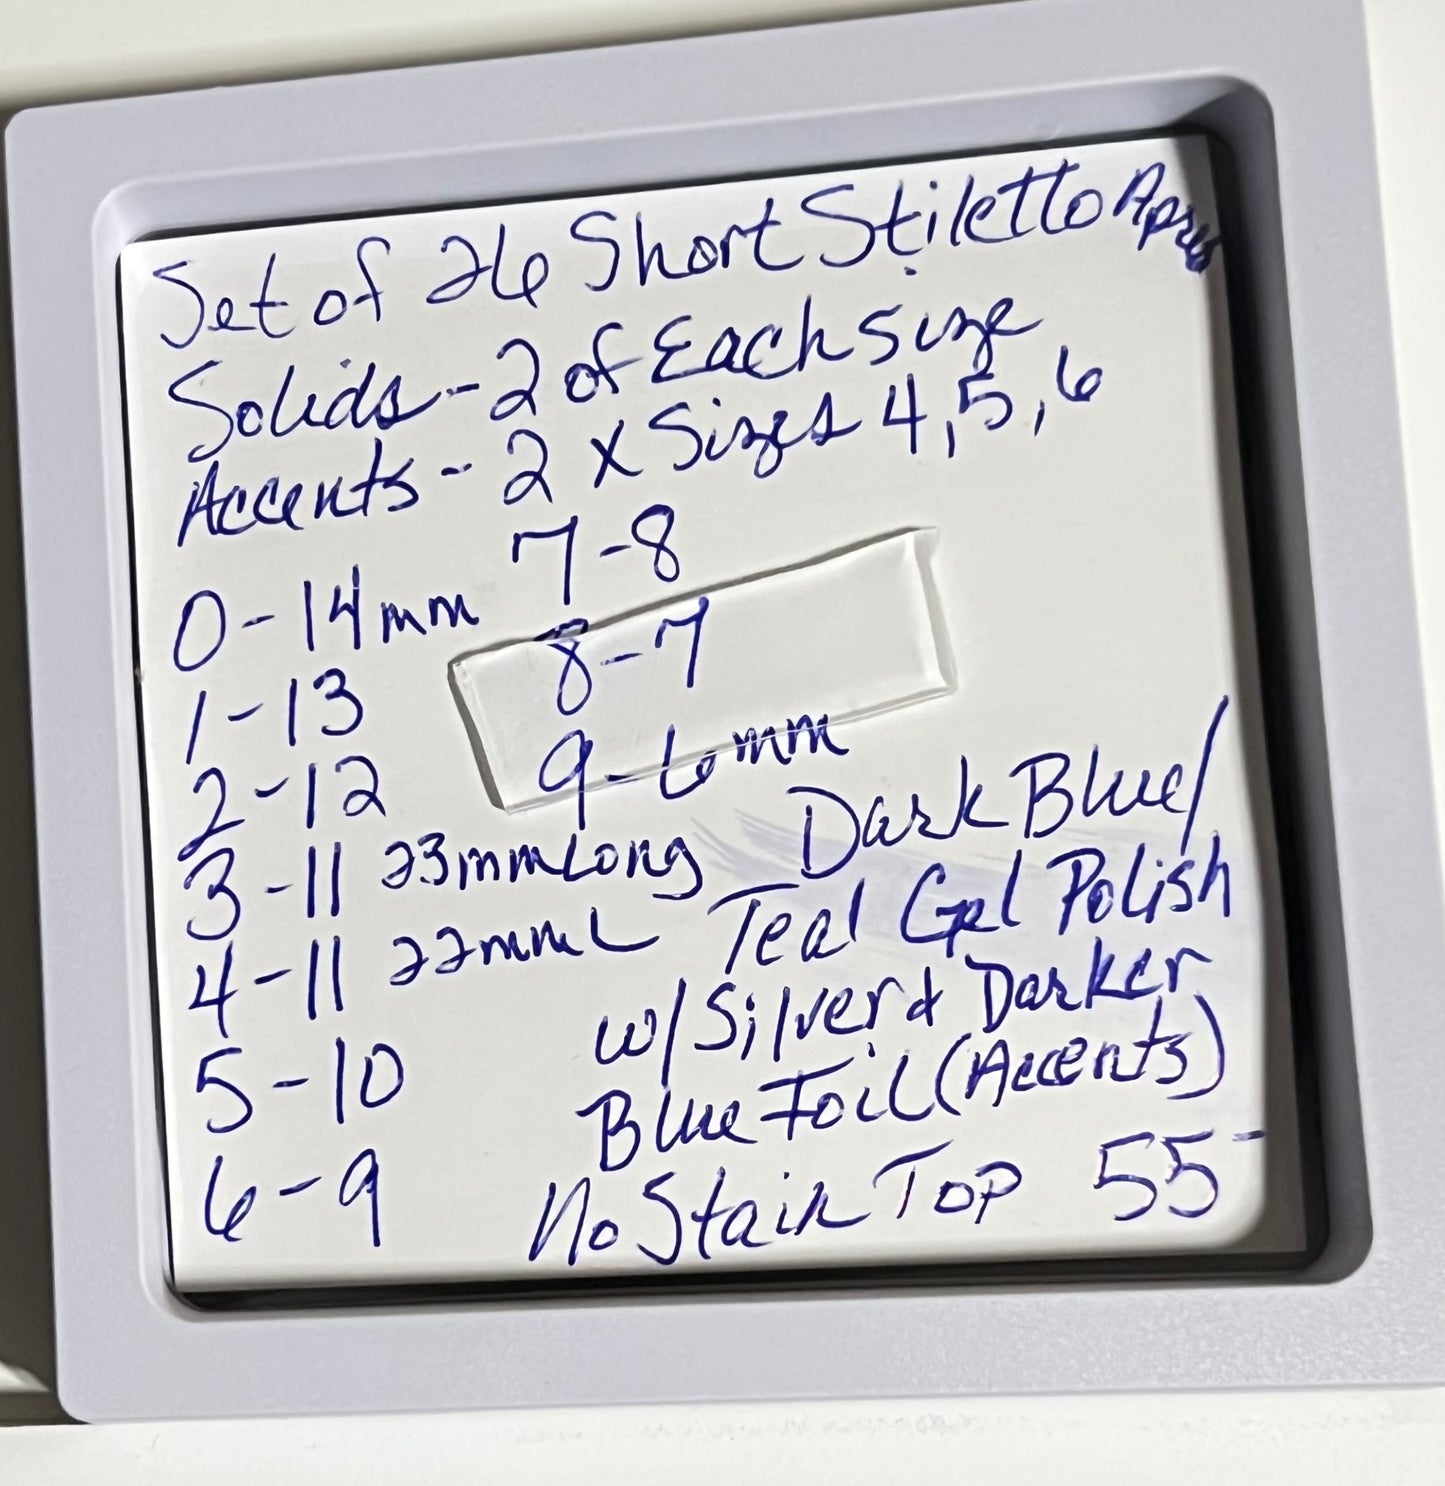 Set of 26 Short Stiletto Apres
Solids - 2 of Each size
Accents - 2 x Sizes 4, 5, 6
0 - 14mm
1 - 13
2 - 12
3 - 11 23mm Long
4 - 11 22mm L
5 - 10
6 - 9
7 - 8
8 - 7
9 - 6mm
Dark Blue/
Teal Gel Polish
w/ Silver & Darker
Blue Foil (Accents)
No Stain Top 55-